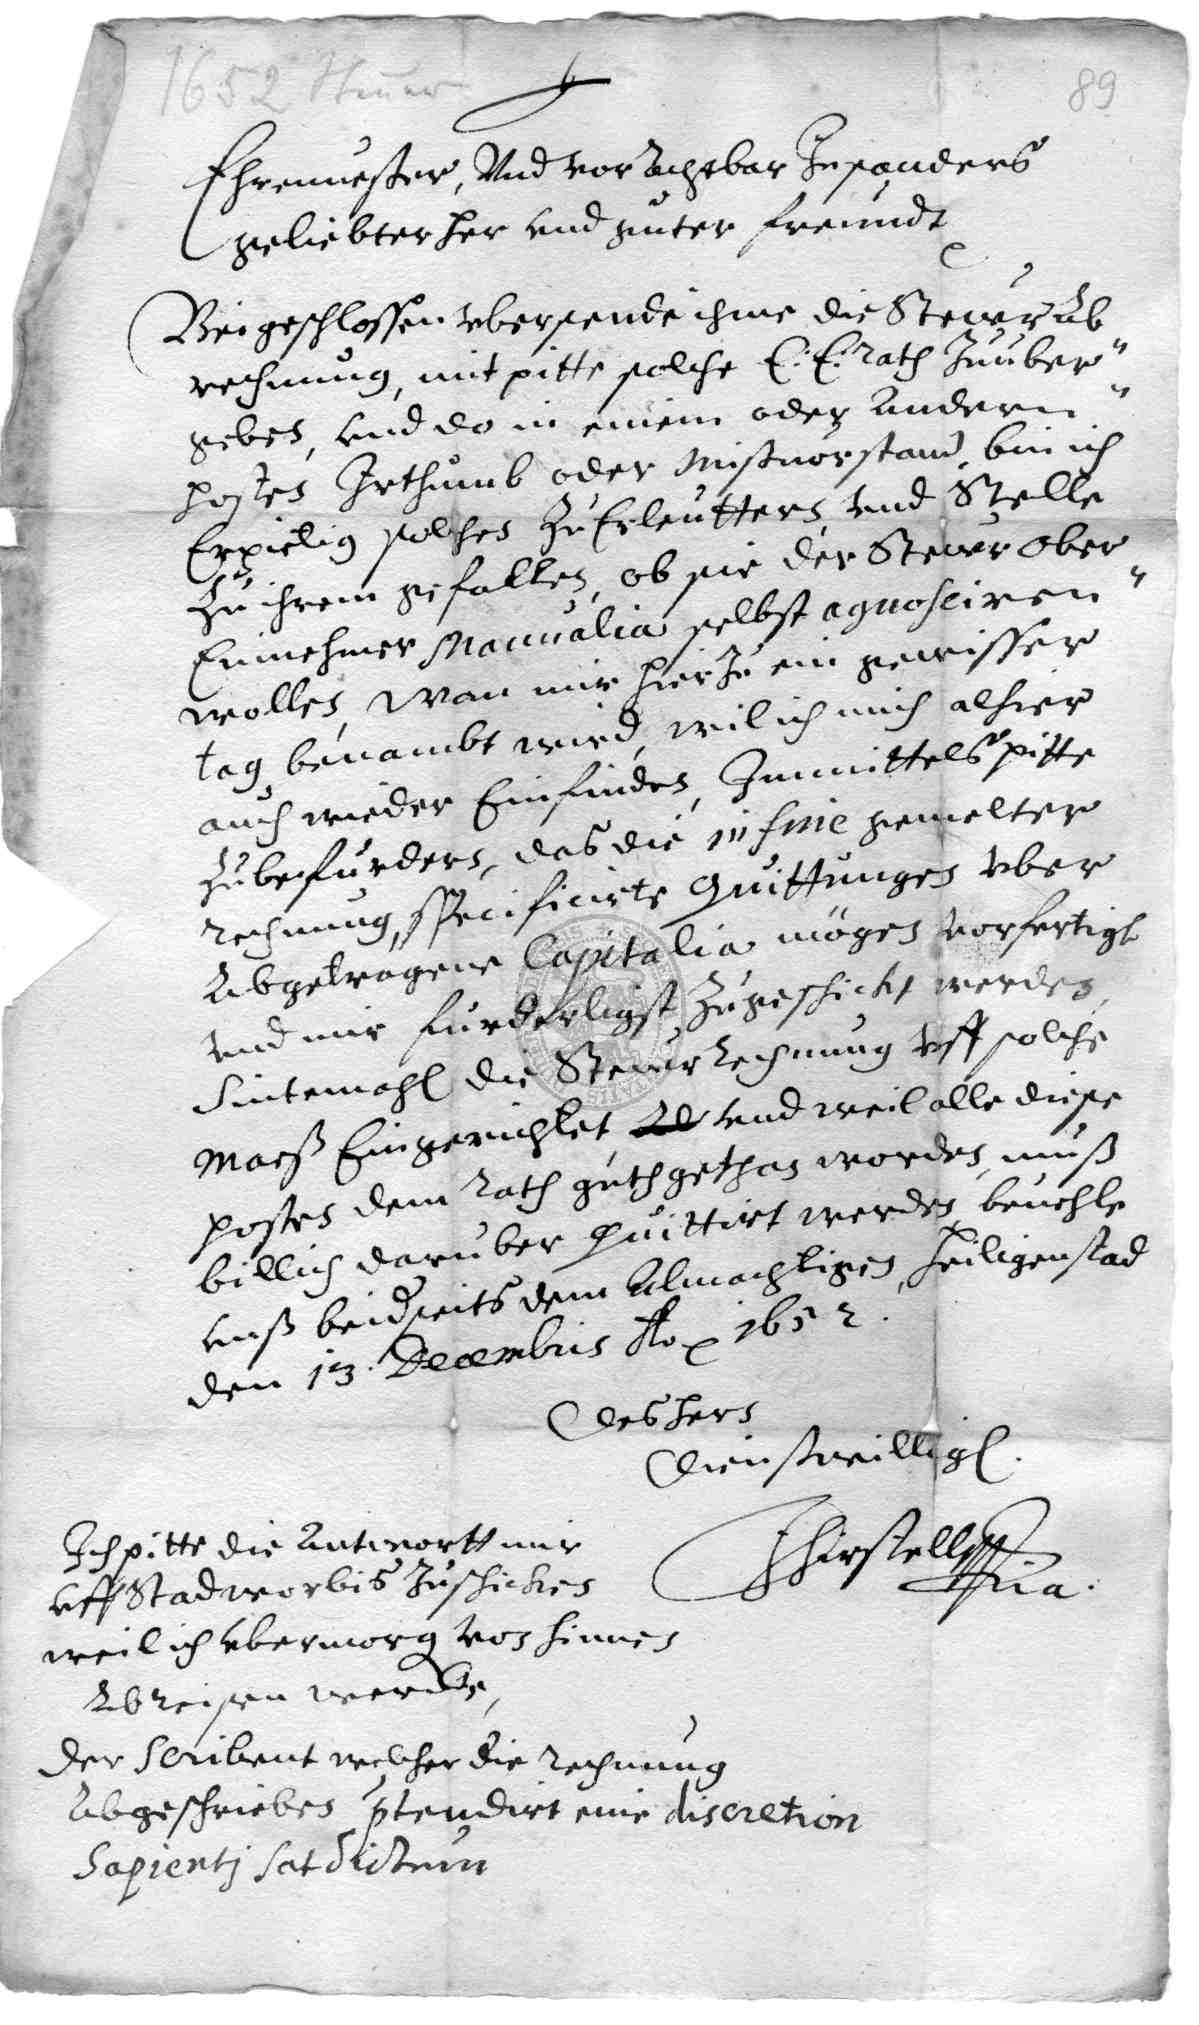 1652 Steuer
89
Ehrenvester, Und vor Achtbar Insonders
geliebter her und guter freundt
Beigeschlossen vbersende ihme die Steuer Ab
rechnung, mit pitte solche E: E: rath Zuuber"
geben, und do in einem oder Andern"
posten Irthumb oder Misuorstand, bin ich
Erpietig solches Zu Erleuttern, und Stelle
Zu ihrem gefallen, ob sie der Steuer Ober
Einnehmer Manualia selbst agnosciren"
wollen, Wan mir hierZu ein gewisser
tag benambt wird, wil ich mich alhier
auch wieder Einfinden, Inmittels pitte
Zubefurdern, das die in fine gemelter
rechnung, specificirte Quittungen vber
Abgetragene Capitalia mögen vorfertigt
und mir furderligst Zugeschickt werden,
Sintemahl die Steuer Rechnung vff solche
Maeß Eingerichtet, und weil alle diese
posten dem Rath guth gethan worden, muß
billich daruber Quittirt werden, beuehle
unß beiderseits dem Almachtigen, Heiligenstad
den 13. Decembris Ao 1652.
Des hern
Dienstwilligl.
Ich pitte die Antwortt mir
vff Stadworbis Zuschicken
weil ich vbermorg von hinnen
Abreisen werde,
der Scribent welcher die rechnung
Abgeschrieben ptendirt eine discretion
Sapienti sat dictum